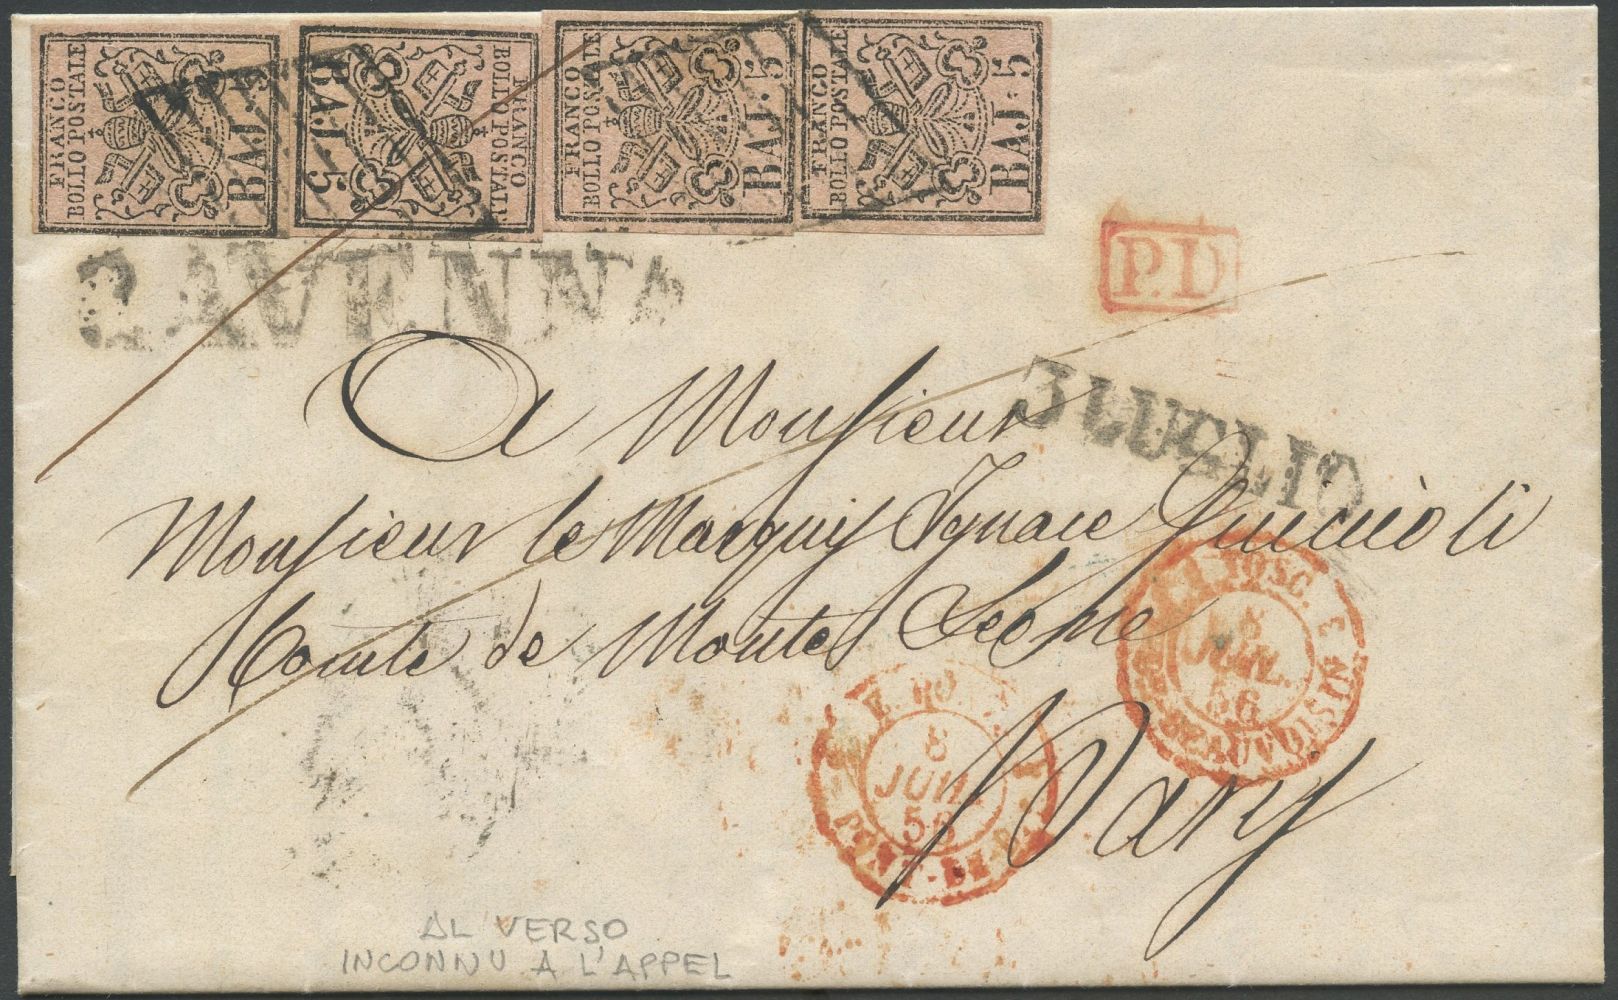 FRANCO
BOLLO POSTALE
BAJ: 5
FRANCO
BOLLO POSTALE
BAJ: 5
FRANCO
BOLLO POSTALE
BAJ: 5
FRANCO
BOLLO POSTALE
BAJ: 5
RAVENNA
P.D
3 LUGLIO
A Monsieur
Monsieur le Marquis Ignace
Comte de Monte Leone
Paris
TOSC.
8
JUIL.
56
PONT-DE-B
8
JUIL.
56
BEAUVOISIN 3
AL VERSO
INCONNU A L'APPEL